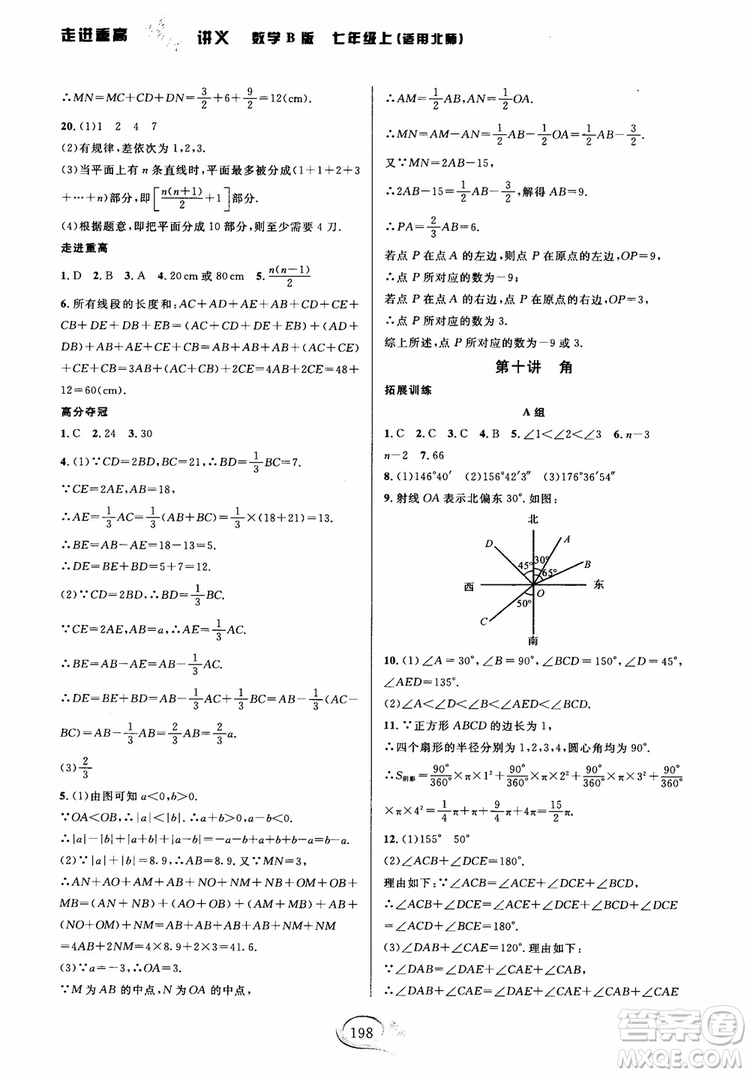 走进重高 讲义 数学B版 七年级上(适用北师)
∴MN=MC+CD+DN=3/2+6+9/2=12(cm).
20.(1)1 2 4 7
(2)有规律,差依次为1,2,3.
(3)当平面上有n条直线时,平面最多被分成(1+1+2+3
+…+n)部分,即[n(n+1)/2+1]部分.
(4)根据题意,即把平面分成10部分,则至少需要4刀.
走进重高
1.D 2.B 3.A 4.20cm或80cm 5.n(n-1)/2
6.所有线段的长度和:AC+AD+AE+AB+CD+CE+
CB+DE+DB+EB=(AC+CD+DE+EB)+(AD+
DB)+AE+AB+CE+CB=AB+AB+(AC+CE)+
AB+CE+CB=3AB+(AC+CE+EB)+CE=48+
12=60(cm).
高分夺冠
1.C 2.24 3.30
4.(1)∵CD=2BD,BC=21,∴BD=1/3BC=7.
∵CE=2AE,AB=18,
∴AE=1/3AC=1/3(AB+BC)=1/3×(18+21)=13.
∴BE=AB-AE=18-13=5.
∴DE=BE+BD=5+7=12.
(2)∵CD=2BD,∴BD=1/3BC.
∵CE=2AE,AB=a,∴AE=1/3AC.
∴BE=AB-AE=AB-1/3AC.
∴DE=BE+BD=AB-1/3AC+1/3BC=AB-1/3(AC-
BC)=AB-1/3AB=2/3AB.∵AB=a,∴DE=2/3a.
(3)2/3
5.(1)由图可知a<0,b>0.
∵OA<OB,∴|a|<|b|.∴a+b>0,a-b<0.
∴|a|-|b|+|a+b|+|a-b|=-a-b+a+b+b-a=b-a.
(2)∵|a|+|b|=8.9,∴AB=8.9.又∵MN=3,
∴AN+AO+AM+AB+NO+NM+NB+OM+OB+
MB=(AN+NB)+(AO+OB)+(AM+MB)+AB+
(NO+OM)+NM=AB+AB+AB+AB+NM+NM=
4AB+2NM=4×8.9+2×3=41.6.
(3)∵a=-3,∴OA=3.
∵M为AB的中点,N为OA的中点,
∴AM=1/2AB,AN=1/2OA.
∴MN=AM-AN=1/2AB-1/2OA=1/2AB-3/2.
又∵MN=2AB-15,
∴2AB-15=1/2AB-3/2,解得AB=9.
∴PA=2/3AB=6.
若点P在点A的左边,则点P在原点的左边,OP=9;
∴点P所对应的数为-9;
若点P在点A的右边,则点P在原点的右边,OP=3.
∴点P所对应的数为3.
综上所述,点P所对应的数为-9或3.
第十讲 角
拓展训练
A组
1.C 2.C 3.C 4.B 5.∠1<∠2<∠3 6.n-3
n-2 7.66
8.(1)146°40′ (2)156°52′12″ (3)176°36′54″
9.射线OA表示北偏东30°.如图:
北
D
A
B
45°
30°
65°
西
东
O
50°
C
南
10.(1)∠A=30°,∠B=90°,∠BCD=150°,
∠AED=135°.
(2)∠A<∠D<∠B<∠AED<∠BCD.
11.∵正方形ABCD的边长为1,
∴四个扇形的半径分别为1,2,3,4,圆心角均为90°.
∴S阴影=90°/360°×π×1²+90°/360°×π×2²+90°/360°×π×3²+90°/360°
×π×4²=1/4π+π+9/4π+4π=15/2π.
12.(1)155° 50°
(2)∠ACB+∠DCE=180°.
理由如下:∵∠ACB=∠ACE+∠BCE,
∴∠ACB+∠DCE=∠ACE+∠BCE+∠DCE.
∴∠ACB+∠DCE=180°.
(3)∠DAB+∠CAE=120°.理由如下:
∵∠DAB=∠DAE+∠CAE+∠CAB,
∴∠DAB+∠CAE=∠DAE+∠CAE+∠CAB+
198
答案圈
MXQE.COM